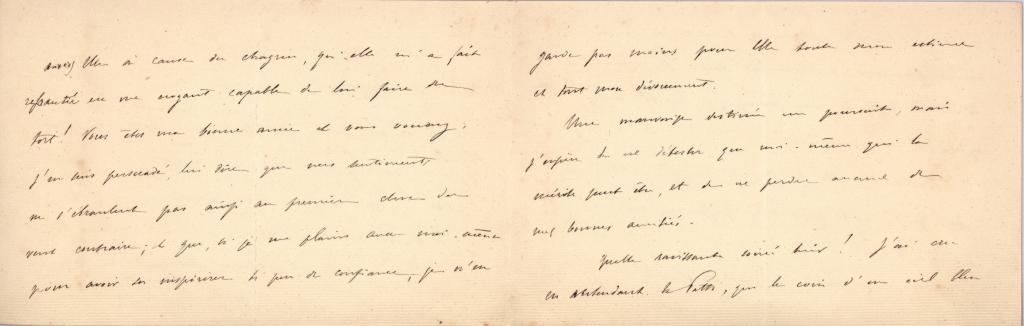 Elle à cause du chagrin, qu'elle m'a fait
ressentir en me croyant capable de lui faire du
tort! Vous êtes ma bonne amie et vous voudrez,
j'en suis persuadé, lui dire que mes sentiments
ne s'ébranlent pas ainsi au premier choc du
vent contraire; et que, si je me plains avec moi-même
pour avoir su inspirer si peu de confiance, je n'en
garde pas moins pour Elle toute mon estime
et tout mon dévouement.
Une mauvaise destinée me poursuit, mais
j'espère de ne détester que moi-même qui le
mérite peut être, et de ne perdre aucune de
mes bonnes amitiés.
Quelle ravissante soirée hier! J'ai cru
en entendant la Patti, que le coin d'un ciel bleu